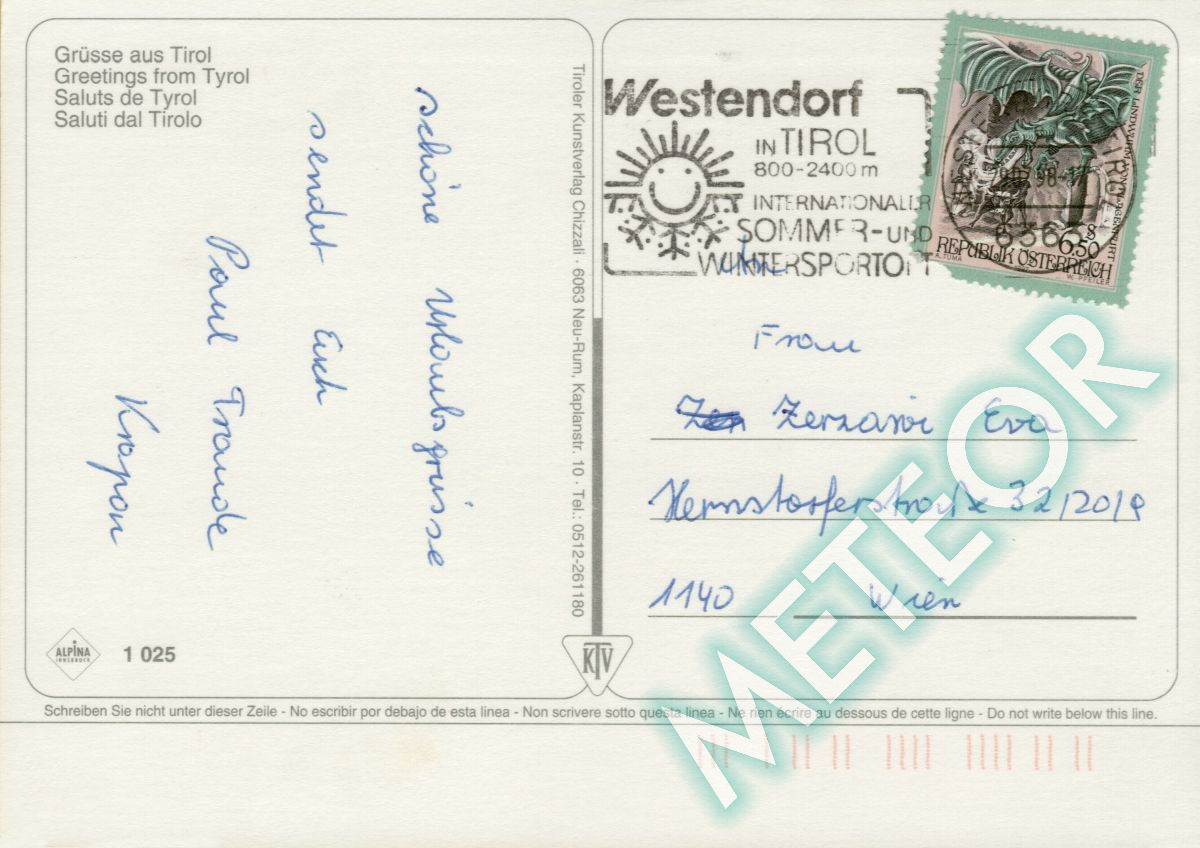 Grüsse aus Tirol
Greetings from Tyrol
Saluts de Tyrol
Saluti dal Tirolo
schöne Urlaubsgrüsse
sendet Euch
Paul Traude
Krapon
ALPINA
INNSBRUCK
1 025
Tiroler Kunstverlag Chizzali · 6063 Neu-Rum, Kaplanstr. 10 · Tel.: 0512-261180
KTV
Westendorf
IN TIROL
800-2400 m
INTERNATIONALER
SOMMER-UND
WINTERSPORTORT
DER LINDWURM VON KLAGENFURT
6363
S
6.50
REPUBLIK ÖSTERREICH
A. TUMA
W. PFEILER
An
Frau
Zerzawi Eva
32/20/9
1140 Wien
METEOR
Schreiben Sie nicht unter dieser Zeile - No escribir por debajo de esta linea - Non scrivere sotto questa linea - Ne rien écrire au dessous de cette ligne - Do not write below this line.